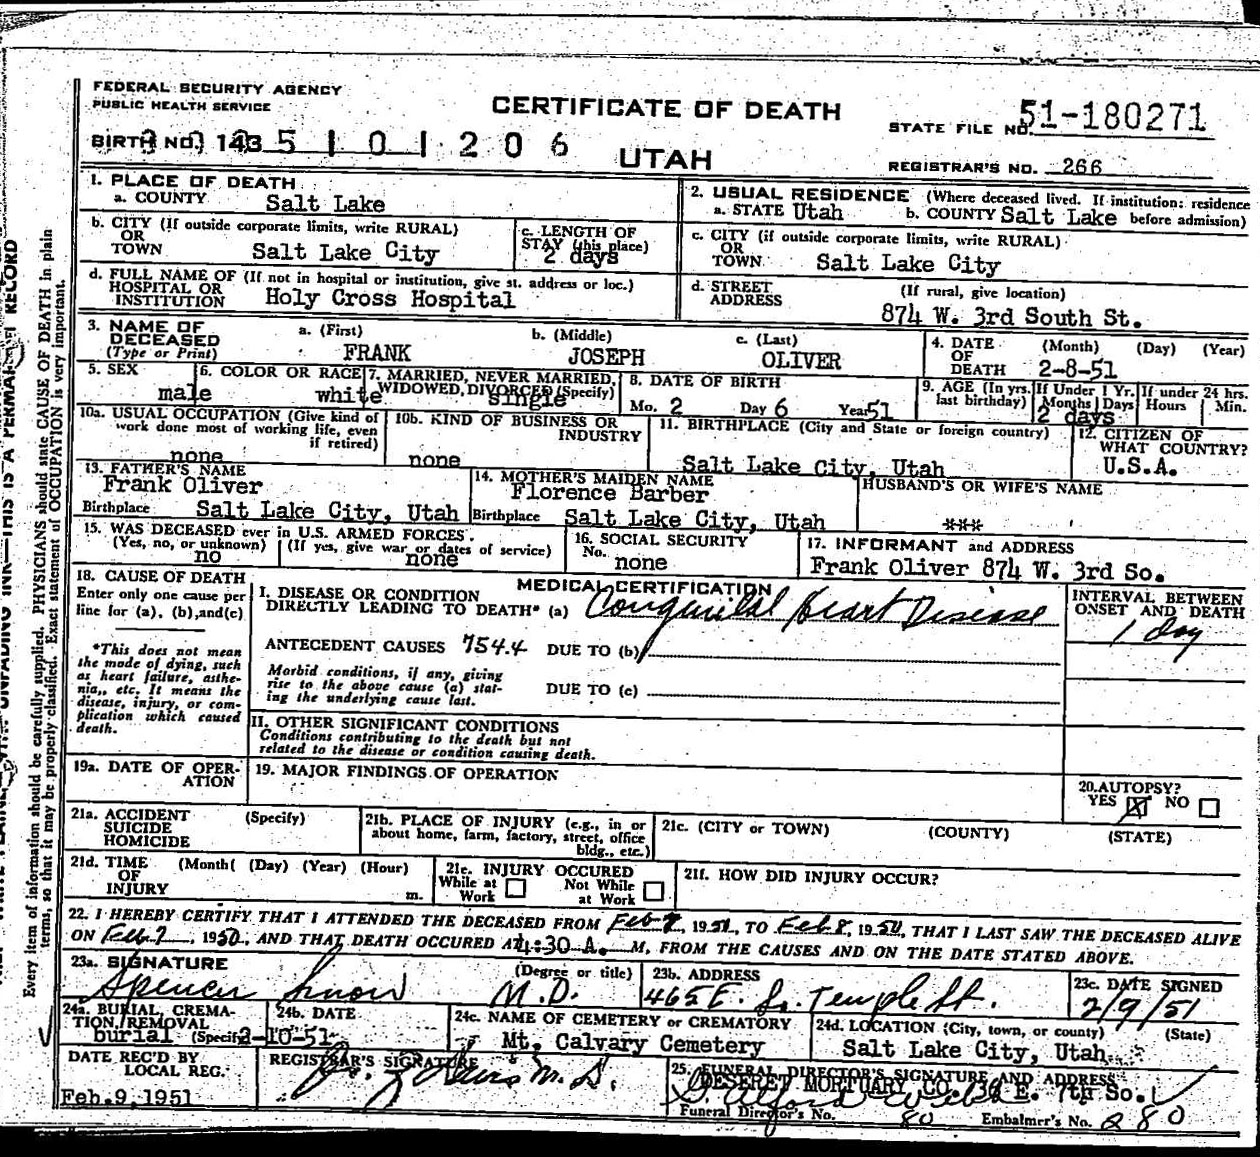 FEDERAL SECURITY AGENCY
PUBLIC HEALTH SERVICE
CERTIFICATE OF DEATH
STATE FILE NO. 51-180271
BIRTH NO. 143 5 1 0 1 2 0 6
UTAH
REGISTRAR'S NO. 266
1. PLACE OF DEATH
a. COUNTY Salt Lake
2. USUAL RESIDENCE (Where deceased lived. If institution: residence
a. STATE Utah b. COUNTY Salt Lake before admission)
b. CITY (If outside corporate limits, write RURAL)
OR
TOWN Salt Lake City
c. LENGTH OF
STAY (this place)
2 days
c. CITY (if outside corporate limits, write RURAL)
OR
TOWN Salt Lake City
d. FULL NAME OF (If not in hospital or institution, give st. address or loc.)
HOSPITAL OR
INSTITUTION Holy Cross Hospital
d. STREET (If rural, give location)
ADDRESS
874 W. 3rd South St.
3. NAME OF
DECEASED
(Type or Print)
a. (First) b. (Middle) c. (Last)
FRANK JOSEPH OLIVER
4. DATE (Month) (Day) (Year)
OF
DEATH 2-8-51
5. SEX
male
6. COLOR OR RACE
white
7. MARRIED, NEVER MARRIED,
WIDOWED, DIVORCED (Specify)
single
8. DATE OF BIRTH
Mo. 2 Day 6 Year 51
9. AGE (In yrs.
last birthday)
If Under 1 Yr.
Months Days
2 days
If under 24 hrs.
Hours Min.
10a. USUAL OCCUPATION (Give kind of
work done most of working life, even
if retired)
none
10b. KIND OF BUSINESS OR
INDUSTRY
none
11. BIRTHPLACE (City and State or foreign country)
Salt Lake City, Utah
12. CITIZEN OF
WHAT COUNTRY?
U.S.A.
13. FATHER'S NAME
Frank Oliver
Birthplace Salt Lake City, Utah
14. MOTHER'S MAIDEN NAME
Florence Barber
Birthplace Salt Lake City, Utah
HUSBAND'S OR WIFE'S NAME
***
15. WAS DECEASED ever in U.S. ARMED FORCES.
(Yes, no, or unknown) (If yes, give war or dates of service)
no none
16. SOCIAL SECURITY
No.
none
17. INFORMANT and ADDRESS
Frank Oliver 874 W. 3rd So.
18. CAUSE OF DEATH
Enter only one cause per
line for (a), (b), and (c)
*This does not mean
the mode of dying, such
as heart failure, asthe-
nia,, etc. It means the
disease, injury, or com-
plication which caused
death.
MEDICAL CERTIFICATION
I. DISEASE OR CONDITION
DIRECTLY LEADING TO DEATH* (a) Congenital Heart Disease
ANTECEDENT CAUSES 754.4 DUE TO (b)
Morbid conditions, if any, giving
rise to the above cause (a) stat-
ing the underlying cause last.
DUE TO (c)
INTERVAL BETWEEN
ONSET AND DEATH
1 day
II. OTHER SIGNIFICANT CONDITIONS
Conditions contributing to the death but not
related to the disease or condition causing death.
19a. DATE OF OPER-
ATION
19. MAJOR FINDINGS OF OPERATION
20. AUTOPSY?
YES X NO
21a. ACCIDENT (Specify)
SUICIDE
HOMICIDE
21b. PLACE OF INJURY (e.g., in or
about home, farm, factory, street, office
bldg., etc.)
21c. (CITY or TOWN) (COUNTY) (STATE)
21d. TIME (Month( (Day) (Year) (Hour)
OF
INJURY m.
21e. INJURY OCCURED
While at Work Not While at Work
21f. HOW DID INJURY OCCUR?
22. I HEREBY CERTIFY THAT I ATTENDED THE DECEASED FROM Feb 7, 1951, TO Feb. 8, 1950, THAT I LAST SAW THE DECEASED ALIVE
ON Feb 7, 1950, AND THAT DEATH OCCURED AT 4:30 A. M, FROM THE CAUSES AND ON THE DATE STATED ABOVE.
23a. SIGNATURE (Degree or title)
Spencer Snow M.D.
23b. ADDRESS
465 E. So. Temple St.
23c. DATE SIGNED
2/9/51
24a. BURIAL, CREMA-
TION, REMOVAL
burial (Specify)
24b. DATE
2-10-51
24c. NAME OF CEMETERY or CREMATORY
Mt. Calvary Cemetery
24d. LOCATION (City, town, or county) (State)
Salt Lake City, Utah
DATE REC'D BY
LOCAL REG.
Feb. 9, 1951
REGISTRAR'S SIGNATURE
M.D.
25. FUNERAL DIRECTOR'S SIGNATURE AND ADDRESS
DESERET MORTUARY CO. 36 E. 7th So.
Funeral Director's No. 80 Embalmer's No. 280
Every item of information should be carefully supplied. PHYSICIANS should state CAUSE OF DEATH in plain
terms, so that it may be properly classified. Exact statement of OCCUPATION is very important.
UNFADING INK—THIS IS A PERMANENT RECORD